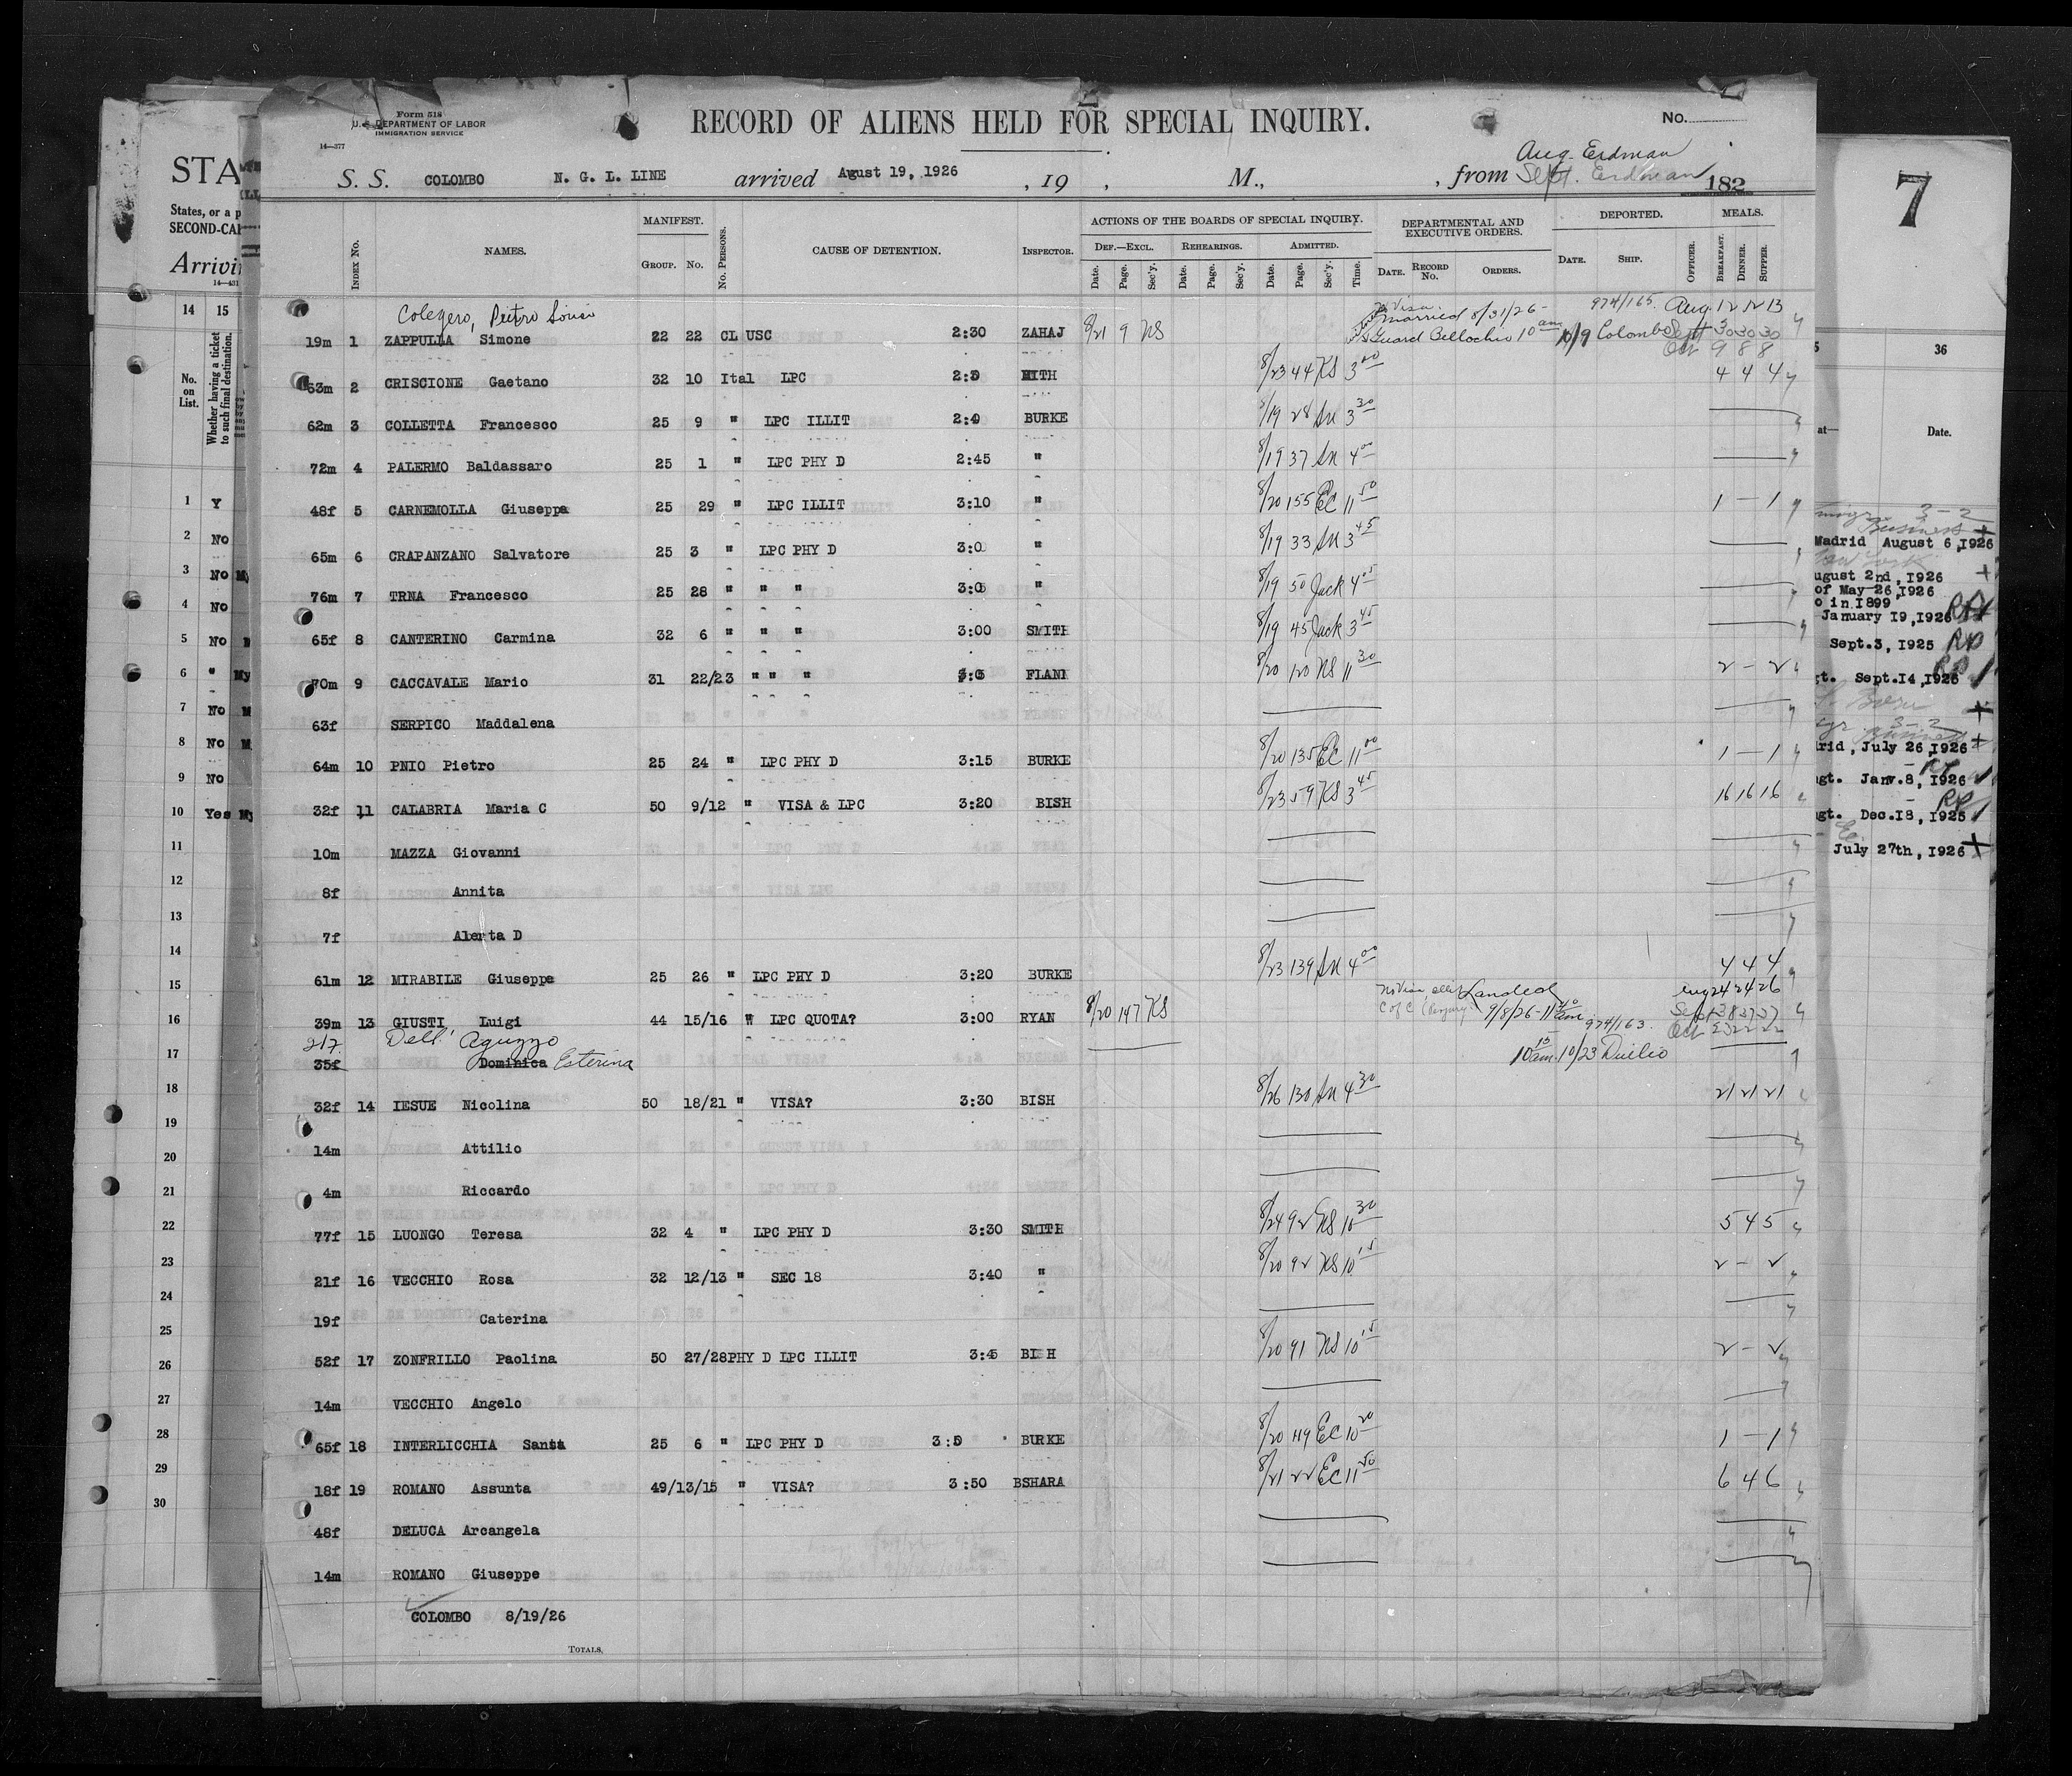 Form 518
U. S. DEPARTMENT OF LABOR
IMMIGRATION SERVICE
14—377
RECORD OF ALIENS HELD FOR SPECIAL INQUIRY.
No.
Aug. Erdman
S. S. COLOMBO N. G. I. LINE arrived August 19, 1926 , 19 , M., , from Sept. Erdman 182
INDEX No. NAMES. MANIFEST. GROUP. No. No. PERSONS. CAUSE OF DETENTION. INSPECTOR. ACTIONS OF THE BOARDS OF SPECIAL INQUIRY. DEF.—EXCL. REHEARINGS. ADMITTED. DEPARTMENTAL AND EXECUTIVE ORDERS. DEPORTED. MEALS.
Date. Page. Sec'y. Date. Page. Sec'y. Date. Page. Sec'y. Time. DATE. RECORD No. ORDERS. DATE. SHIP. OFFICER. BREAKFAST. DINNER. SUPPER.
Colegero, Pietro
No Visa. 974/165. Aug 12 12 13
Married 8/31/26
19m 1 ZAPPULLA Simone 22 22 CL USC 2:30 ZAHAJ 8/21 9 NS Guard Bellochio 10 am 10/9 Colombo Sept 30 30 30
Oct 9 8 8
63m 2 CRISCIONE Gaetano 32 10 Ital LPC 8/23 44 KS 3 00 4 4 4
62m 3 COLLETTA Francesco 25 9 " LPC ILLIT BURKE 8/19 28 SN 3 30
72m 4 PALERMO Baldassaro 25 1 " LPC PHY D 2:45 " 8/19 37 SN 4 00
48f 5 CARNEMOLLA Giuseppa 25 29 " LPC ILLIT 3:10 " 8/20 155 EC 11 50 1 — 1
65m 6 CRAPANZANO Salvatore 25 3 " LPC PHY D " 8/19 33 SN 3 45
76m 7 TRNA Francesco 25 28 " " " " 8/19 50 Jack 4 05
65f 8 CANTERINO Carmina 32 6 " " " 3:00 SMITH 8/19 45 Jack 3 45
70m 9 CACCAVALE Mario 31 22/23 " " " FLANI 8/20 120 NS 11 30 2 — 2
63f SERPICO Maddalena
64m 10 PNIO Pietro 25 24 " LPC PHY D 3:15 BURKE 8/20 135 EC 11 00 1 — 1
32f 11 CALABRIA Maria C 50 9/12 " VISA & LPC 3:20 BISH 8/23 59 KS 3 45 16 16 16
10m MAZZA Giovanni
8f Annita
7f Alerta D
61m 12 MIRABILE Giuseppe 25 26 " LPC PHY D 3:20 BURKE 8/23 139 SN 4 00 4 4 4
Landed Aug 24 24 26
39m 13 GIUSTI Luigi 44 15/16 " LPC QUOTA? 3:00 RYAN 8/20 147 KS C of C 9/8/26 - 11 am 974/163. Sept 38 37 37
217. Dell' Aguzzo Oct 23 22 22
35f Dominica Esterina 10 15 am. 10/23 Duilio
32f 14 IESUE Nicolina 50 18/21 " VISA? 3:30 BISH 8/26 130 SN 4 30 21 21 21
14m Attilio
4m Riccardo
77f 15 LUONGO Teresa 32 4 " LPC PHY D 3:30 SMITH 8/24 92 NS 10 30 5 4 5
21f 16 VECCHIO Rosa 32 12/13 " SEC 18 3:40 " 8/20 92 NS 10 15 2 — 2
19f Caterina
52f 17 ZONFRILLO Paolina 50 27/28 PHY D LPC ILLIT 3:45 BISH 8/20 91 NS 10 15 2 — 2
14m VECCHIO Angelo
65f 18 INTERLICCHIA Santa 25 6 " LPC PHY D BURKE 8/20 119 EC 10 20 1 — 1
18f 19 ROMANO Assunta 49/13/15 " VISA? 3:50 BSHARA 8/21 22 EC 11 50 6 4 6
48f DELUCA Arcangela
14m ROMANO Giuseppe
COLOMBO 8/19/26
TOTALS.
STA
States, or a p
SECOND-CA
Arrivi
14—431
14 15
No. on List.
Whether having a ticket to such final destination.
1 Y
2 No
3 No My
4 No
5 No
6 " My
7 No M
8 No M
9 No
10 Yes My
11
12
13
14
15
16
17
18
19
20
21
22
23
24
25
26
27
28
29
30
7
36
at—
Date.
3-2
Business
Madrid August 6, 1926
New York
ugust 2nd, 1926
of May 26, 1926
o in 1899
January 19, 1926
Sept.3, 1925
gt. Sept.14, 1926
3-2
Business
rid, July 26, 1926
gt. Janv.8, 1926
gt. Dec.18, 1925
July 27th, 1926